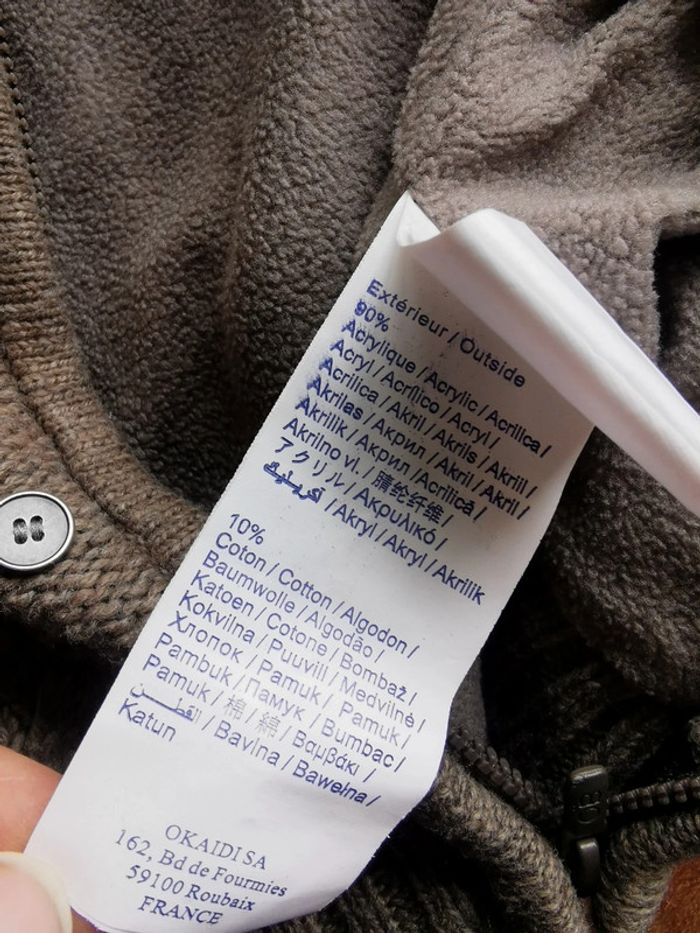 Extérieur / Outside
90%
Acrylique / Acrylic / Acrilica /
Acryl / Acrílico / Acryl /
Acrilica / Akril / Akrils / Akriil /
Akrilas / Акрил / Akril / Akril /
Akrilik / Акрил / Acrilică /
Akrilno vl. / 腈纶纤维 /
アクリル / Ακρυλικό /
/ Akryl / Akryl / Akrilik
10%
Coton / Cotton / Algodon /
Baumwolle / Algodão /
Katoen / Cotone / Bombaž /
Kokvilna / Puuvill / Medvilnė /
Хлопок / Pamuk / Pamuk /
Pambuk / Памук / Bumbac /
Pamuk / 棉 / 綿 / Βαμβάκι /
القطن / Bavlna / Bawełna /
Katun
OKAIDI SA
162, Bd de Fourmies
59100 Roubaix
FRANCE